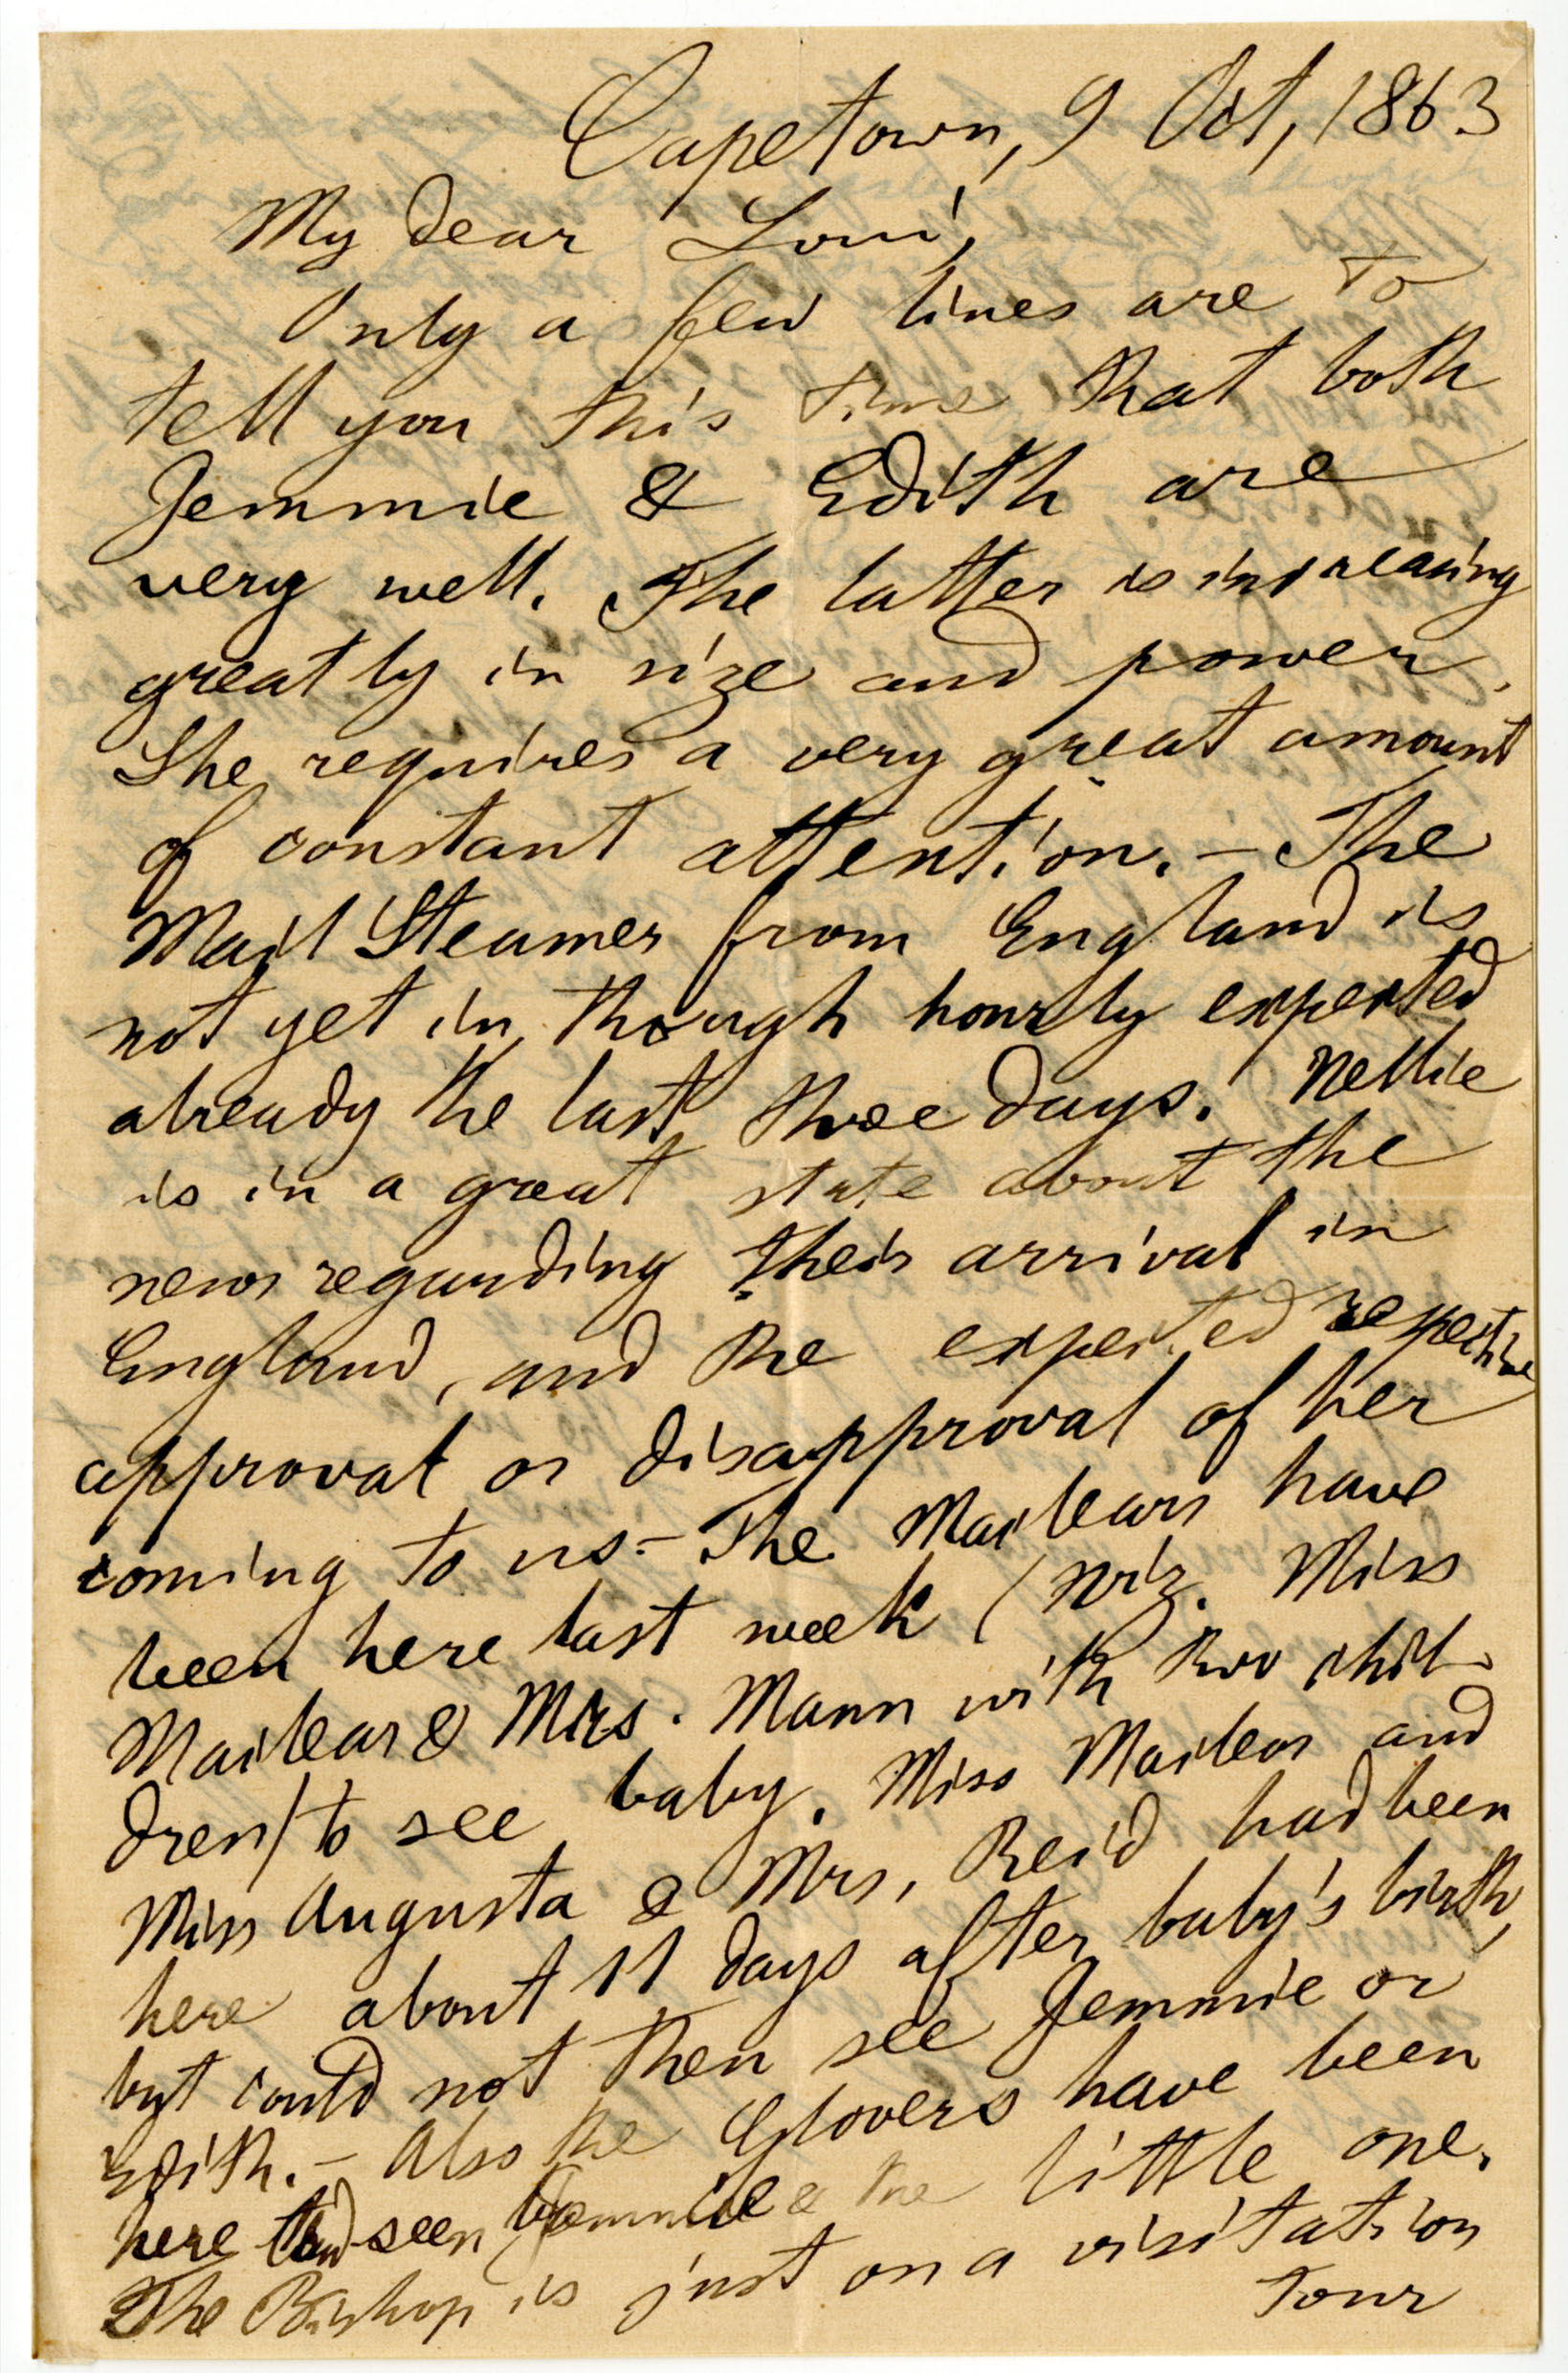 Capetown, 9 Oct, 1863
My dear Loui,
Only a few lines are to
tell you this time that both
Jemmie & Edith are
very well. The latter is increasing
greatly in size and power.
She requires a very great amount
of constant attention. – The
Mail Steamer from England is
not yet in, though hourly expected
already the last three days. Nellie
is in a great state about the
news regarding their arrival in
England, and the expected respective
approval or disapproval of her
coming to us – The Maclears have
been here last week (viz. Miss
Maclear & Mrs. Mann with two chil-
dren) to see baby. Miss Maclear and
Miss Augusta & Mrs. Reid had been
here about 11 days after baby's birth,
but could not then see Jemmie or
Edith. – Also the Glovers have been
here and seen Jemmie & the little one.
The Bishop is just on a visitation
Tour